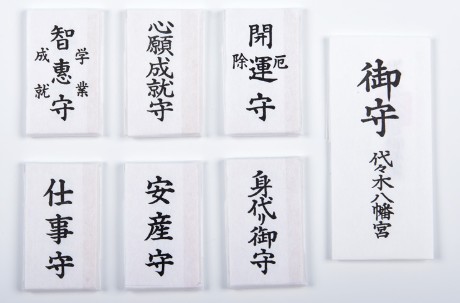 学業
智惠守
成就
心願成就守
厄
開運守
除
仕事守
安産守
身代り御守
御守
代々木八幡宮